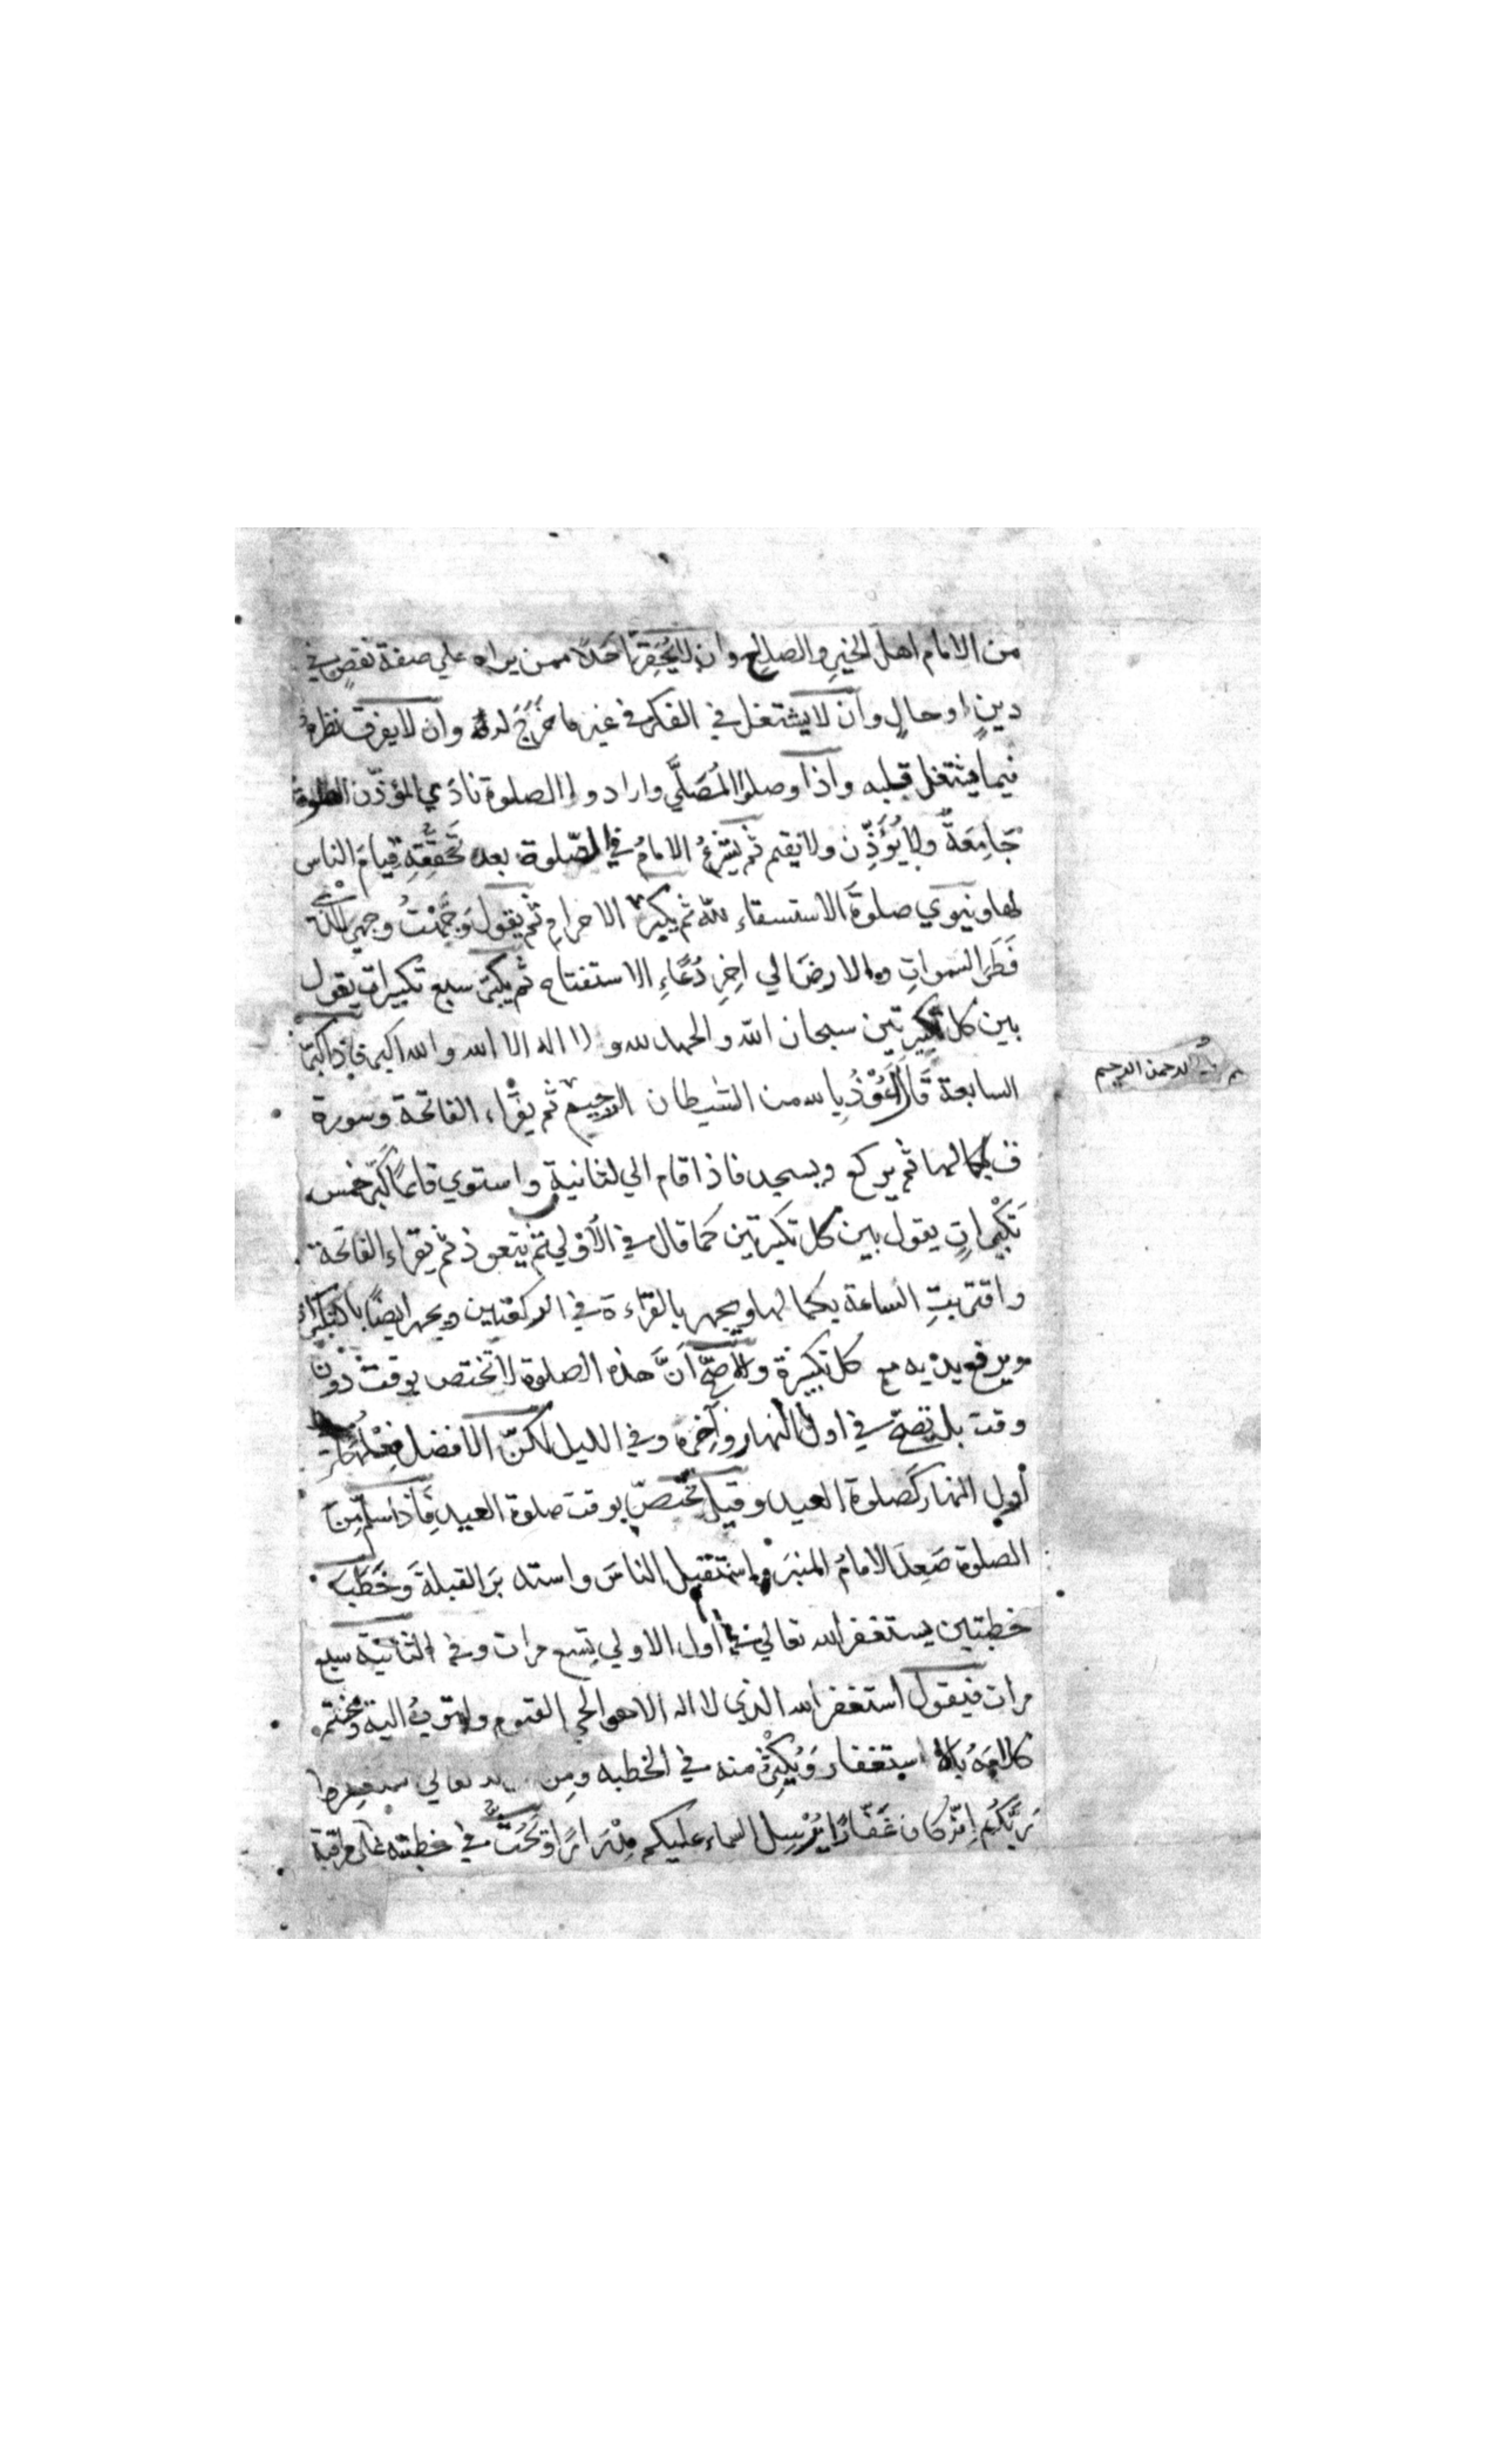 من الانام اهل الخير والصلاح وان لا يحقرن احدا ممن يراه علي صفة نقص في
دين او حال وان لا يشتغل في الفكر في غير ما خرج له وان لا يفرق نظره
فيما يشتغل قبله واذا وصلوا المصلي وارادوا الصلوة نادي المؤذن الصلوة
جامعة ولا يؤذن ولا يقيم ثم يشرع الامام في الصلوة بعد تحققه قيام الناس
لها وينوي صلوة الاستسقاء لله ثم يكبر الاحرام ثم يقول وجهت وجهي للذي
فطر السموات والارض الي اخر دعاء الاستفتاح ثم يكبر سبع تكبيرات يقول
بين كل تكبيرتين سبحان الله والحمد لله ولا اله الا الله والله اكبر فاذا كبر
السابعة قال اعوذ بالله من الشيطان الرجيم ثم يقراء الفاتحة وسورة
بسم الله الرحمن الرحيم
ق بكمالها ثم يركع ويسجد فاذا قام الي الثانية واستوي قائما كبر خمس
تكبيرات يقول بين كل تكبيرتين كما قال في الاولي ثم يتعوذ ثم يقراء الفاتحة
واقتربت الساعة بكمالها ويجهر بالقراءة في الركعتين ويجهر ايضا بالتكبيرات
ويرفع يديه مع كل تكبيرة والاصح ان هذه الصلوة لا تختص بوقت دون
وقت بل تصح في اول النهار وآخره وفي الليل لكن الافضل فعلها
اول النهار كصلوة العيد وقيل تختص بوقت صلوة العيد فاذا سلم من
الصلوة صعد الامام المنبر واستقبل الناس واستدبر القبلة وخطب
خطبتين يستغفر الله تعالي في اول الاولي تسع مرات وفي الثانية سبع
مرات فيقول استغفر الله الذي لا اله الا هو الحي القيوم واتوب اليه ويختم
كلامه بالاستغفار ويكثر منه في الخطبه ومن تعالي استغفروا
ربكم انه كان غفارا يرسل السماء عليكم مدرارا ويحث في خطبته علي مراقبة